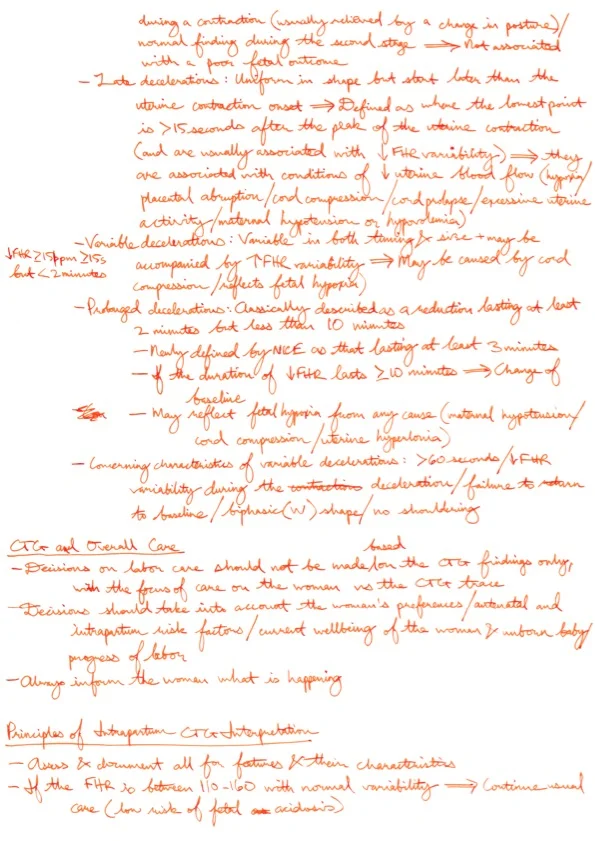 during a contraction (usually relieved by a change in posture)/
normal finding during the second stage ⟹ Not associated
with a poor fetal outcome
- Late decelerations: Uniform in shape but start later than the
uterine contraction onset ⟹ Defined as where the lowest point
is >15 seconds after the peak of the uterine contraction
(and are usually associated with ↓FHR variability) ⟹ they
are associated with conditions of ↓ uterine blood flow (hypoxia/
placental abruption/cord compression/cord prolapse/excessive uterine
activity/maternal hypotension or hypovolemia)
- Variable decelerations: Variable in both timing & size + may be
↓FHR ≥15bpm ≥15s
but <2 minutes
accompanied by ↑FHR variability ⟹ May be caused by cord
compression/reflects fetal hypoxia)
- Prolonged decelerations: Classically described as a reduction lasting at least
2 minutes but less than 10 minutes
- Newly defined by NICE as that lasting at least 3 minutes
- If the duration of ↓FHR lasts ≥10 minutes ⟹ Change of
baseline
- May reflect fetal hypoxia from any cause (maternal hypotension/
cord compression/uterine hypertonia)
- Concerning characteristics of variable decelerations: >60 seconds/↓FHR
variability during the contractions deceleration/failure to return
to baseline/biphasic (W) shape/no shouldering
CTG and Overall Care
- Decisions on labor care should not be made based on the CTG findings only,
with the focus of care on the women vs the CTG trace
- Decisions should take into account the woman's preferences/antenatal and
intrapartum risk factors/current wellbeing of the women & unborn baby/
progress of labor
- Always inform the women what is happening
Principles of Intrapartum CTG Interpretation
- Assess & document all four features & their characteristics
- If the FHR is between 110-160 with normal variability ⟹ Continue usual
care (low risk of fetal acidosis)